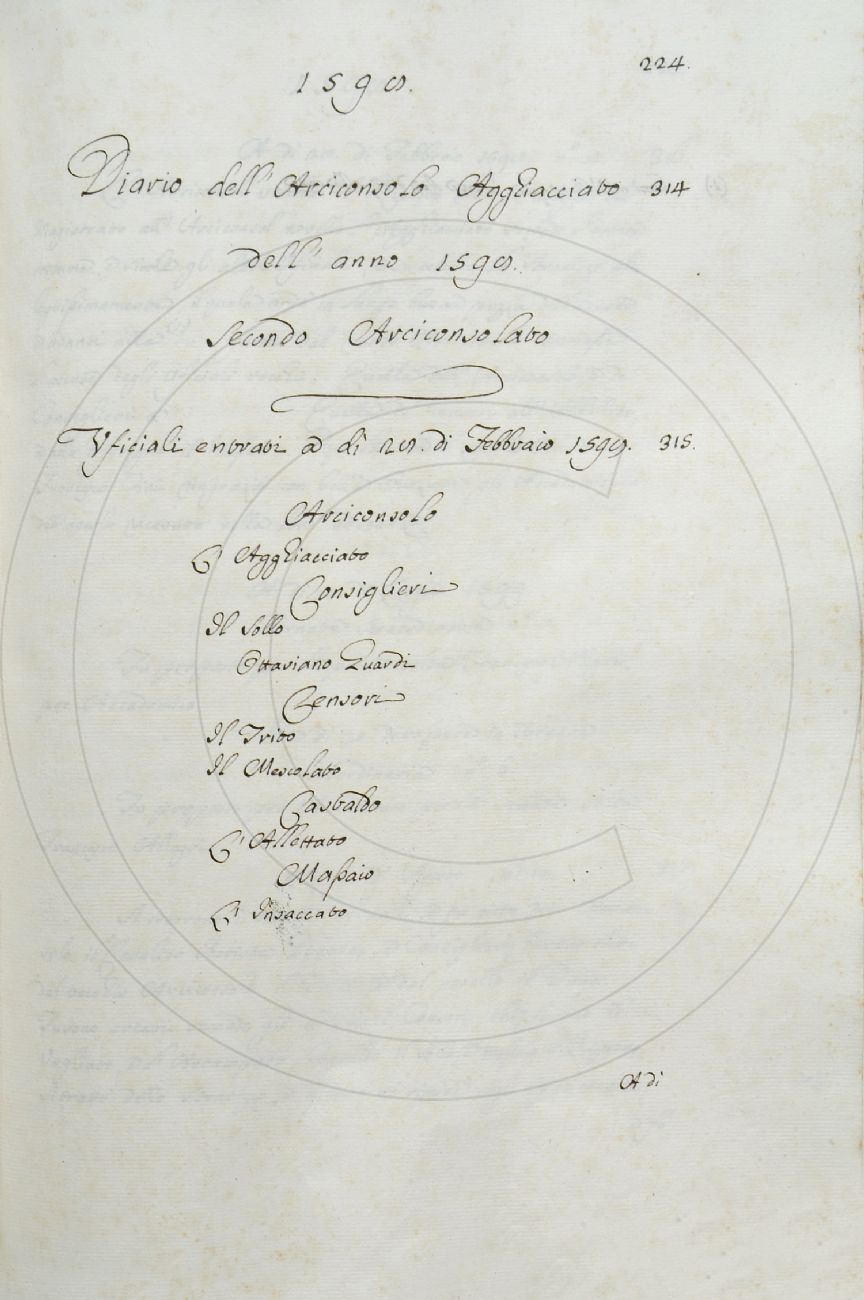 1596.
224.
Diario dell' Arciconsolo Agghiacciato 314
dell' anno 1596.
Secondo Arciconsolato
Vficiali entrati a dì 26. di Febbraio 1596. 315.
Arciconsolo
L' Agghiacciato
Consiglieri
Il Sollo
Ottaviano
Censori
Il Trito
Il Mescolato
Castaldo
L' Allettato
Massaio
L' Insaccato
A di